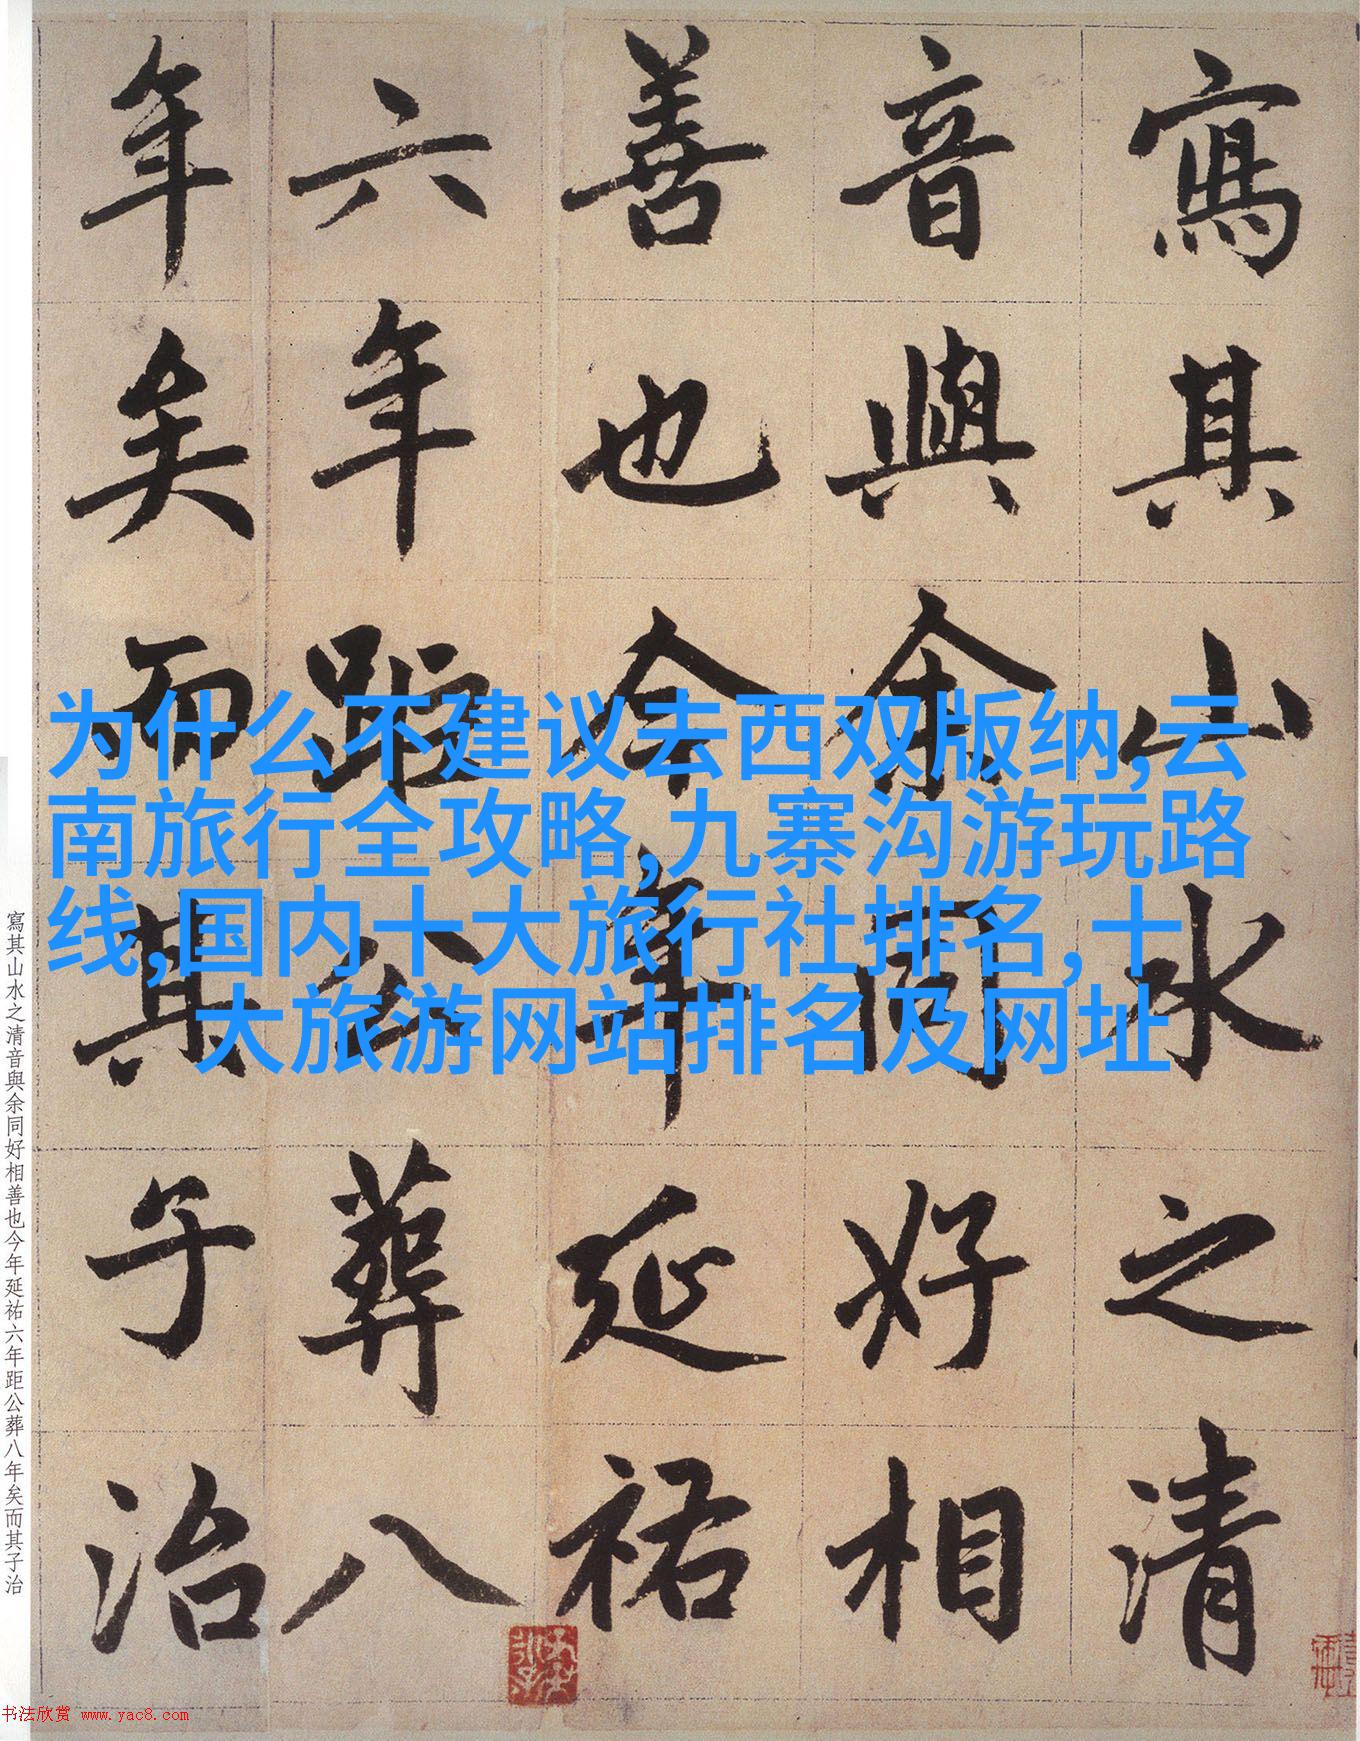 寫其山水之清
音與余同好相
善也今年延祐
六年距公葬八
年矣而其子治
为什么不建议去西双版纳,云
南旅行全攻略,九寨沟游玩路
线,国内十大旅行社排名,十
大旅游网站排名及网址
寫其山水之清音與余同好相善也今年延祐六年距公葬八年矣而其子治
书法欣赏 www.yac8.com